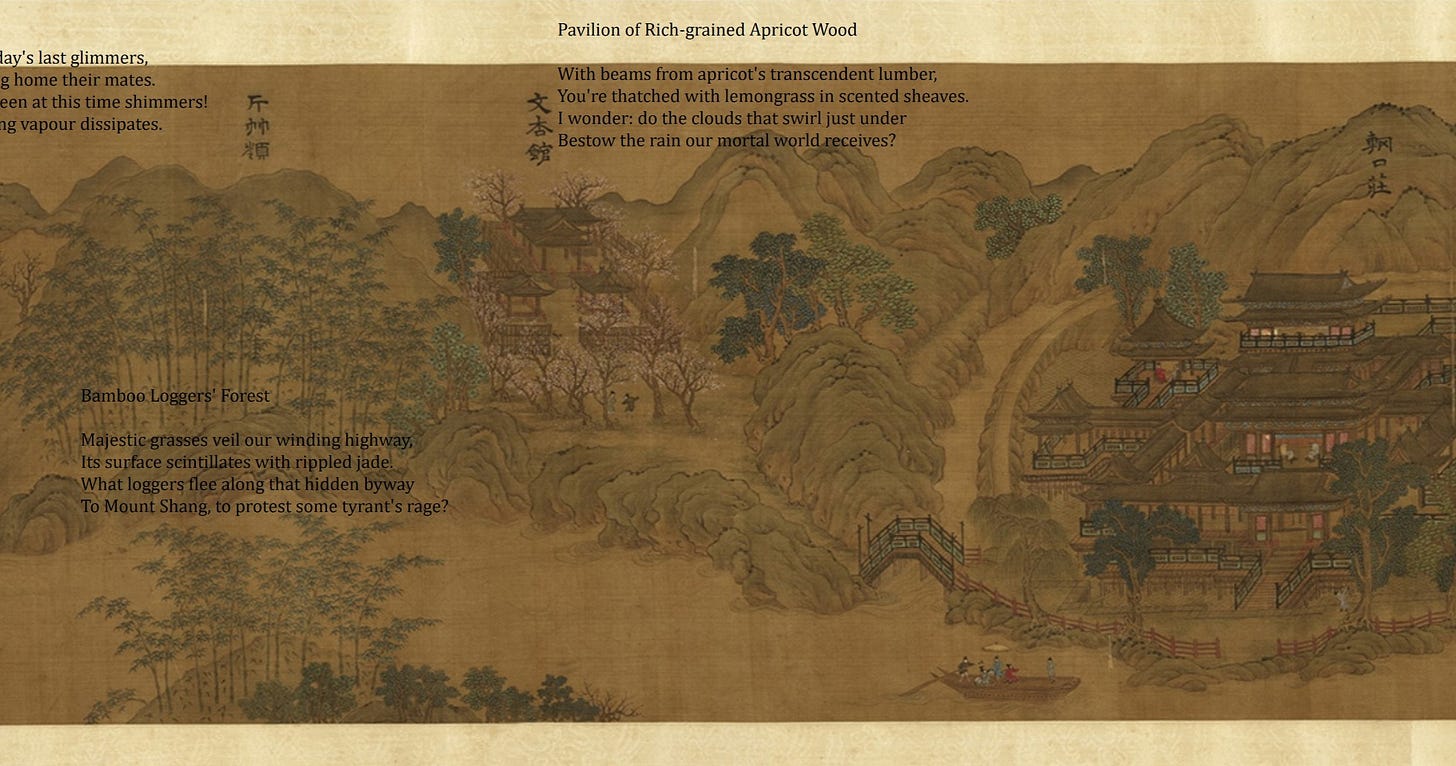 Pavilion of Rich-grained Apricot Wood
With beams from apricot's transcendent lumber,
You're thatched with lemongrass in scented sheaves.
I wonder: do the clouds that swirl just under
Bestow the rain our mortal world receives?
day's last glimmers,
home their mates.
at this time shimmers!
vapour dissipates.
輞口莊
文杏館
斤竹嶺
Bamboo Loggers' Forest
Majestic grasses veil our winding highway,
Its surface scintillates with rippled jade.
What loggers flee along that hidden byway
To Mount Shang, to protest some tyrant's rage?